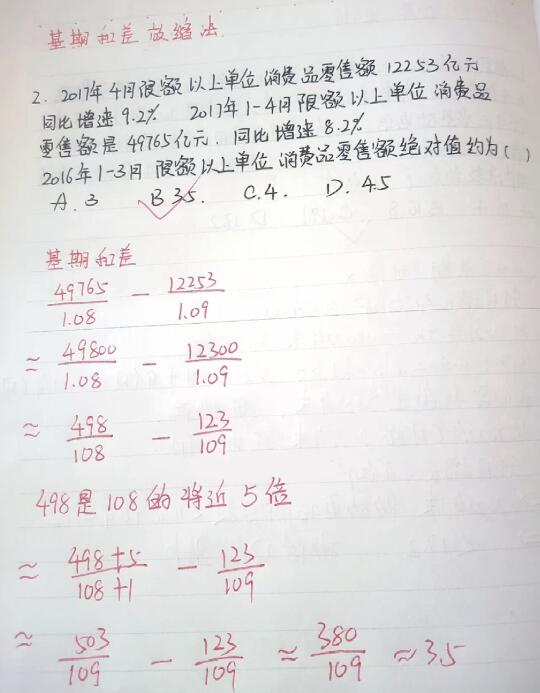 基期和差放缩法
2. 2017年4月限额以上单位消费品零售额12253亿元
同比增速9.2% 2017年1-4月限额以上单位消费品
零售额是49765亿元. 同比增速8.2%
2016年1-3月 限额以上单位消费品零售额绝对值约为( )
A. 3 B 3.5. C. 4. D. 4.5
基期和差
49765/1.08 - 12253/1.09
≈ 49800/1.08 - 12300/1.09
≈ 498/108 - 123/109
498是108的将近5倍
≈ 498+5/108+1 - 123/109
≈ 503/109 - 123/109 ≈ 380/109 ≈ 3.5